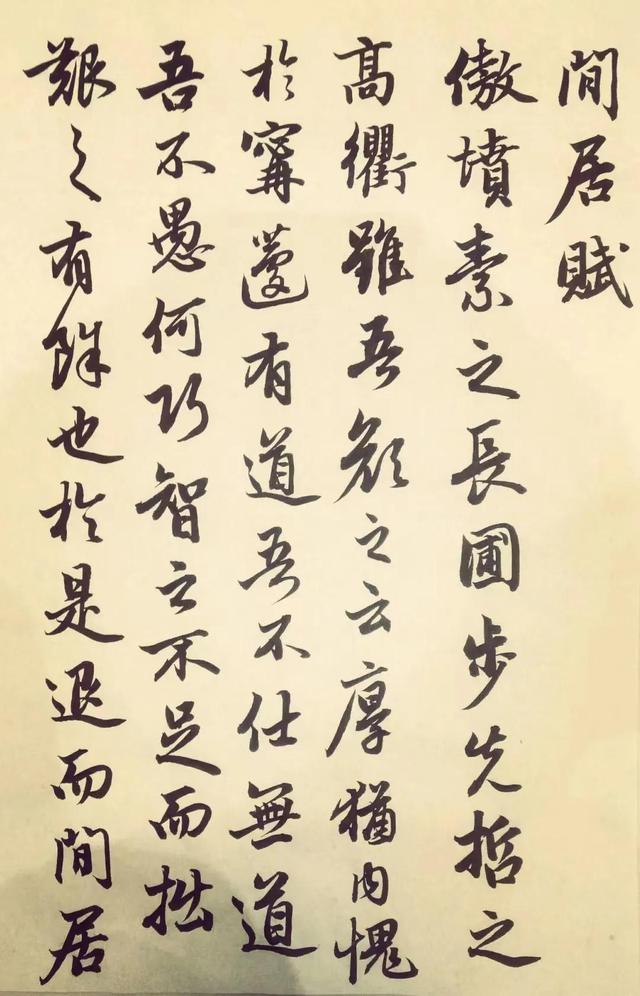 閒居賦
傲墳素之長圃步先哲之
高衢雖吾顏之云厚猶內愧
於甯蘧有道吾不仕無道
吾不愚何巧智之不足而拙
艱之有餘也於是退而閒居